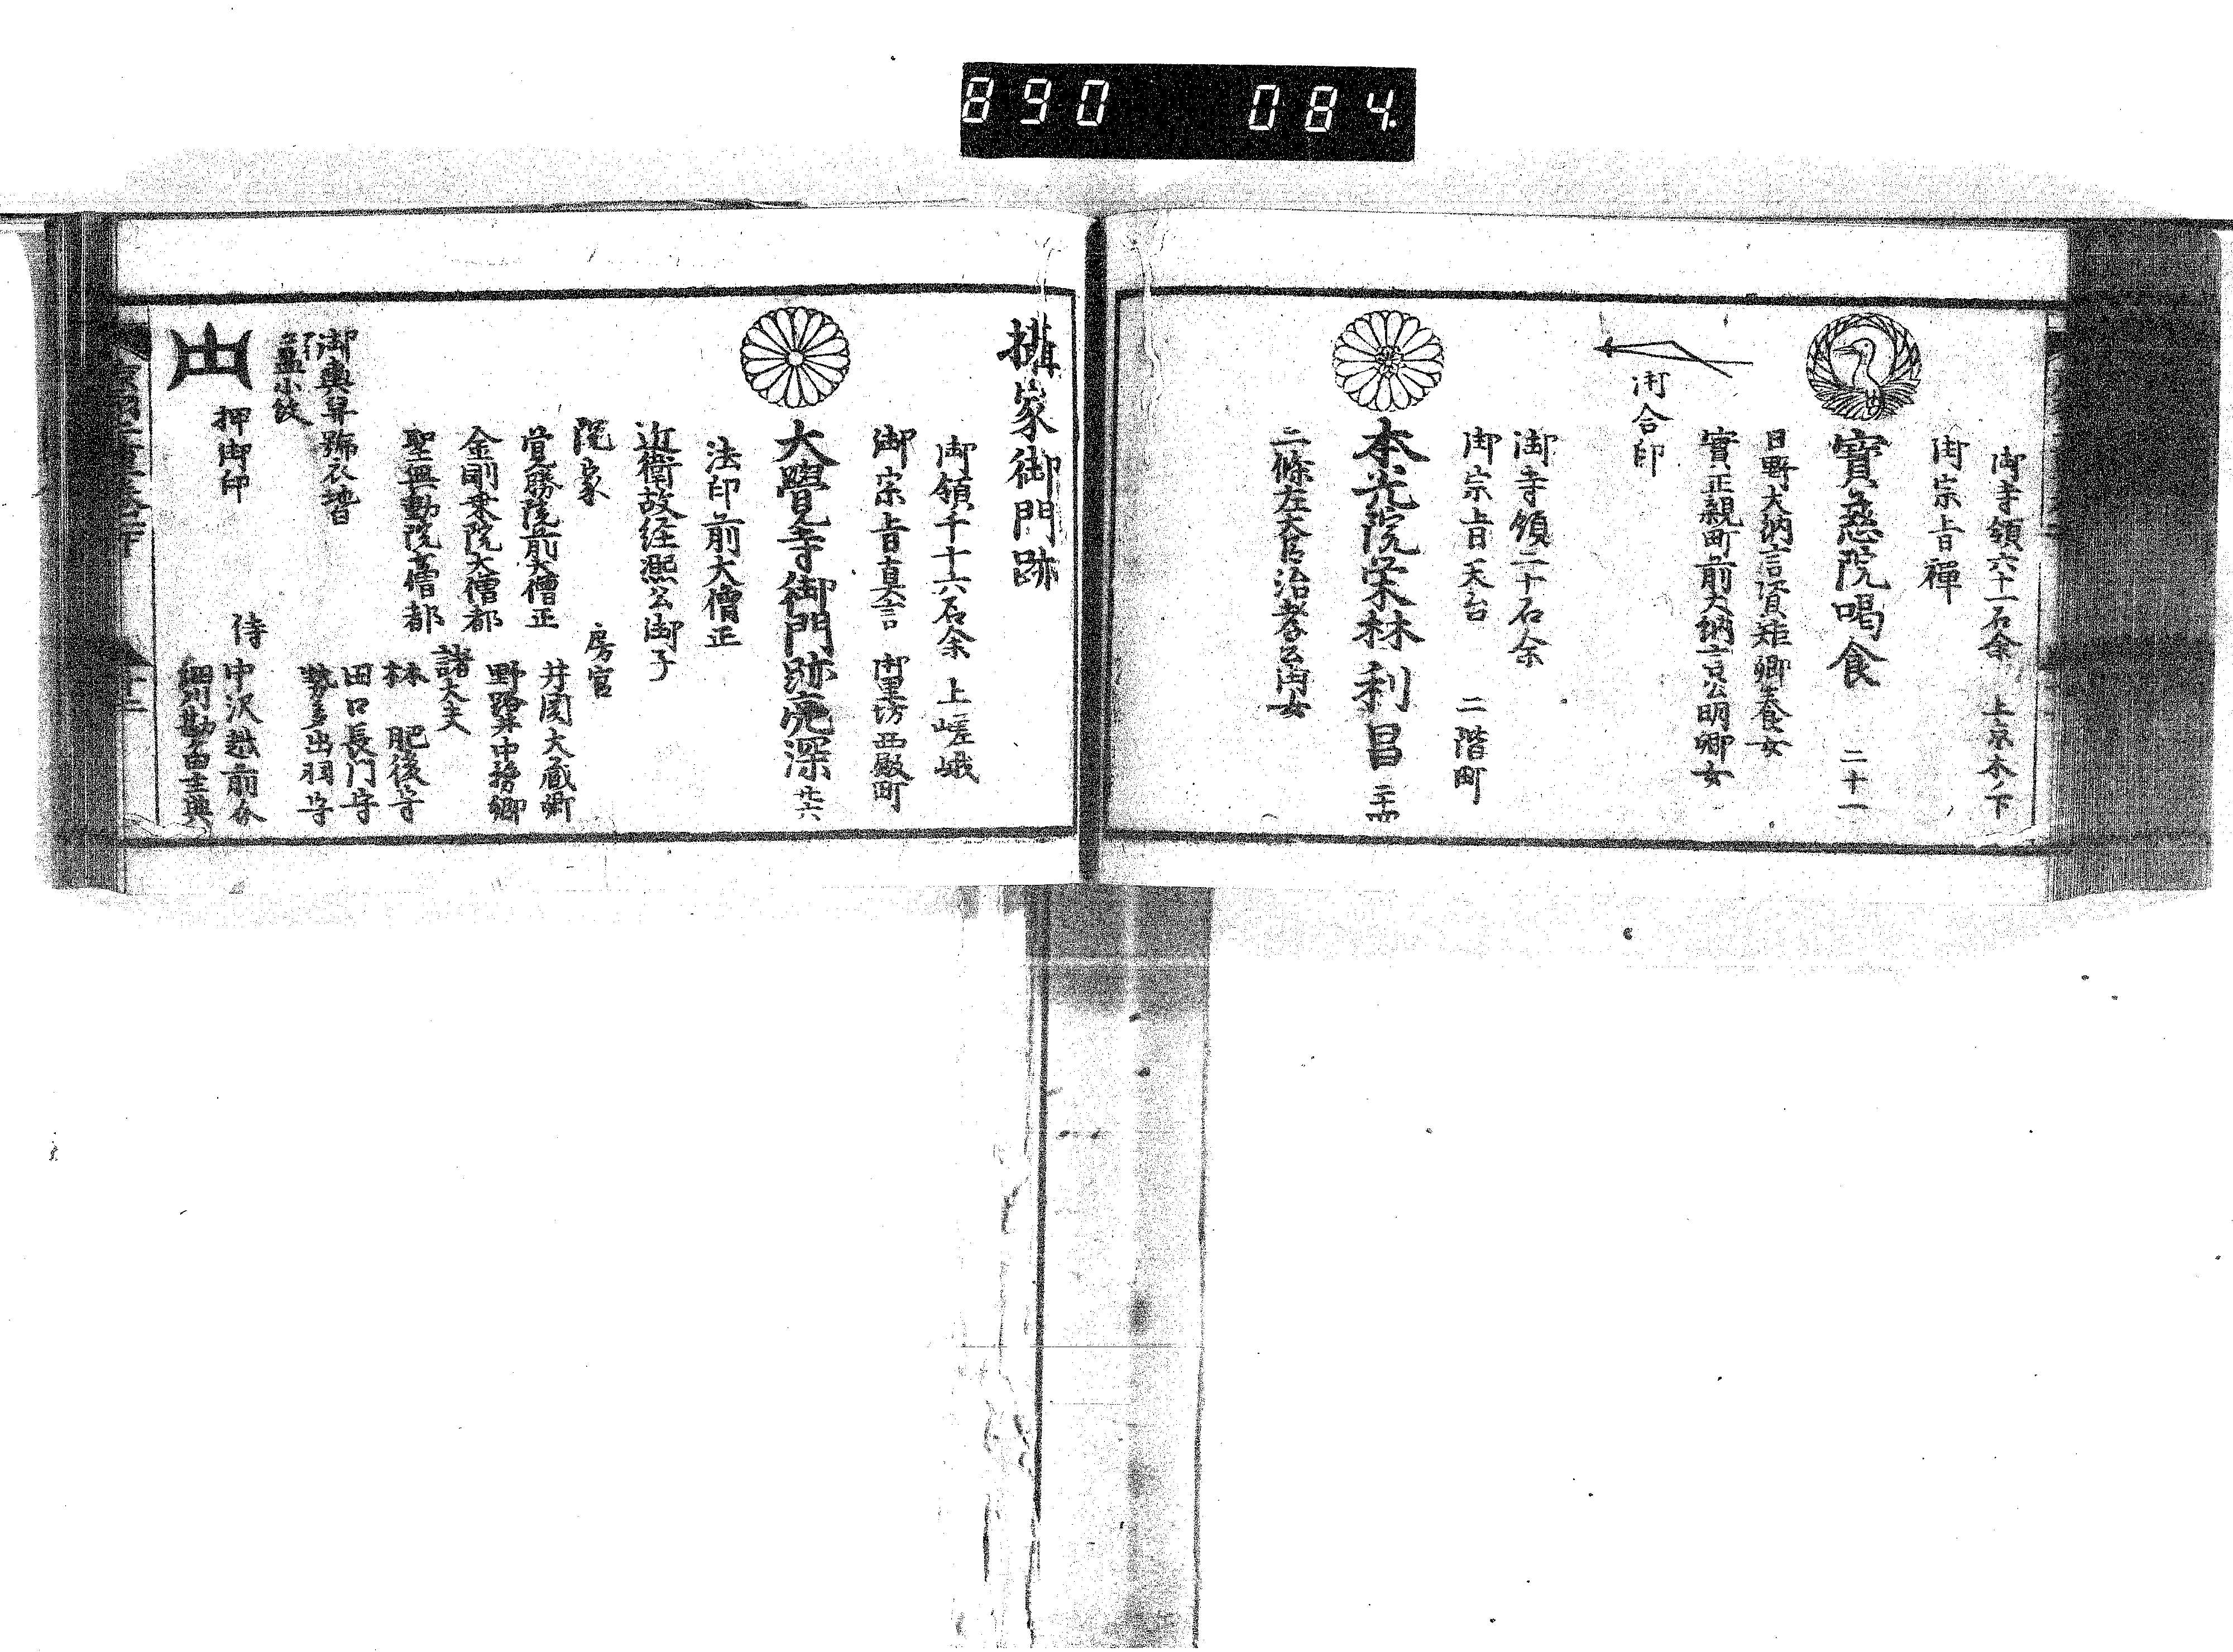 890 084
御寺領六十一石余 上京木ノ下
御宗旨禅
寶慈院喝食 二十一
日野大納言資矩卿養女
實正親町前大納言公明卿女
御合印
御寺領二十石余
御宗旨天台 二階町
本光院栄林利昌
二條左大臣治孝公御女
攝家御門跡
御領千十六石余 上嵯峨
御宗旨真言 御里坊西殿町
大覺寺御門跡亮深 廿六
法印前大僧正
近衛故経熈公御子
院家
覚勝院前大僧正
金剛乗院大僧都
聖無動院大僧都
房官
井関大蔵卿
野路井中務卿
諸大夫
林 肥後守
田口長門守
勢多出羽守
侍
中沢越前介
御輿舁
押御印